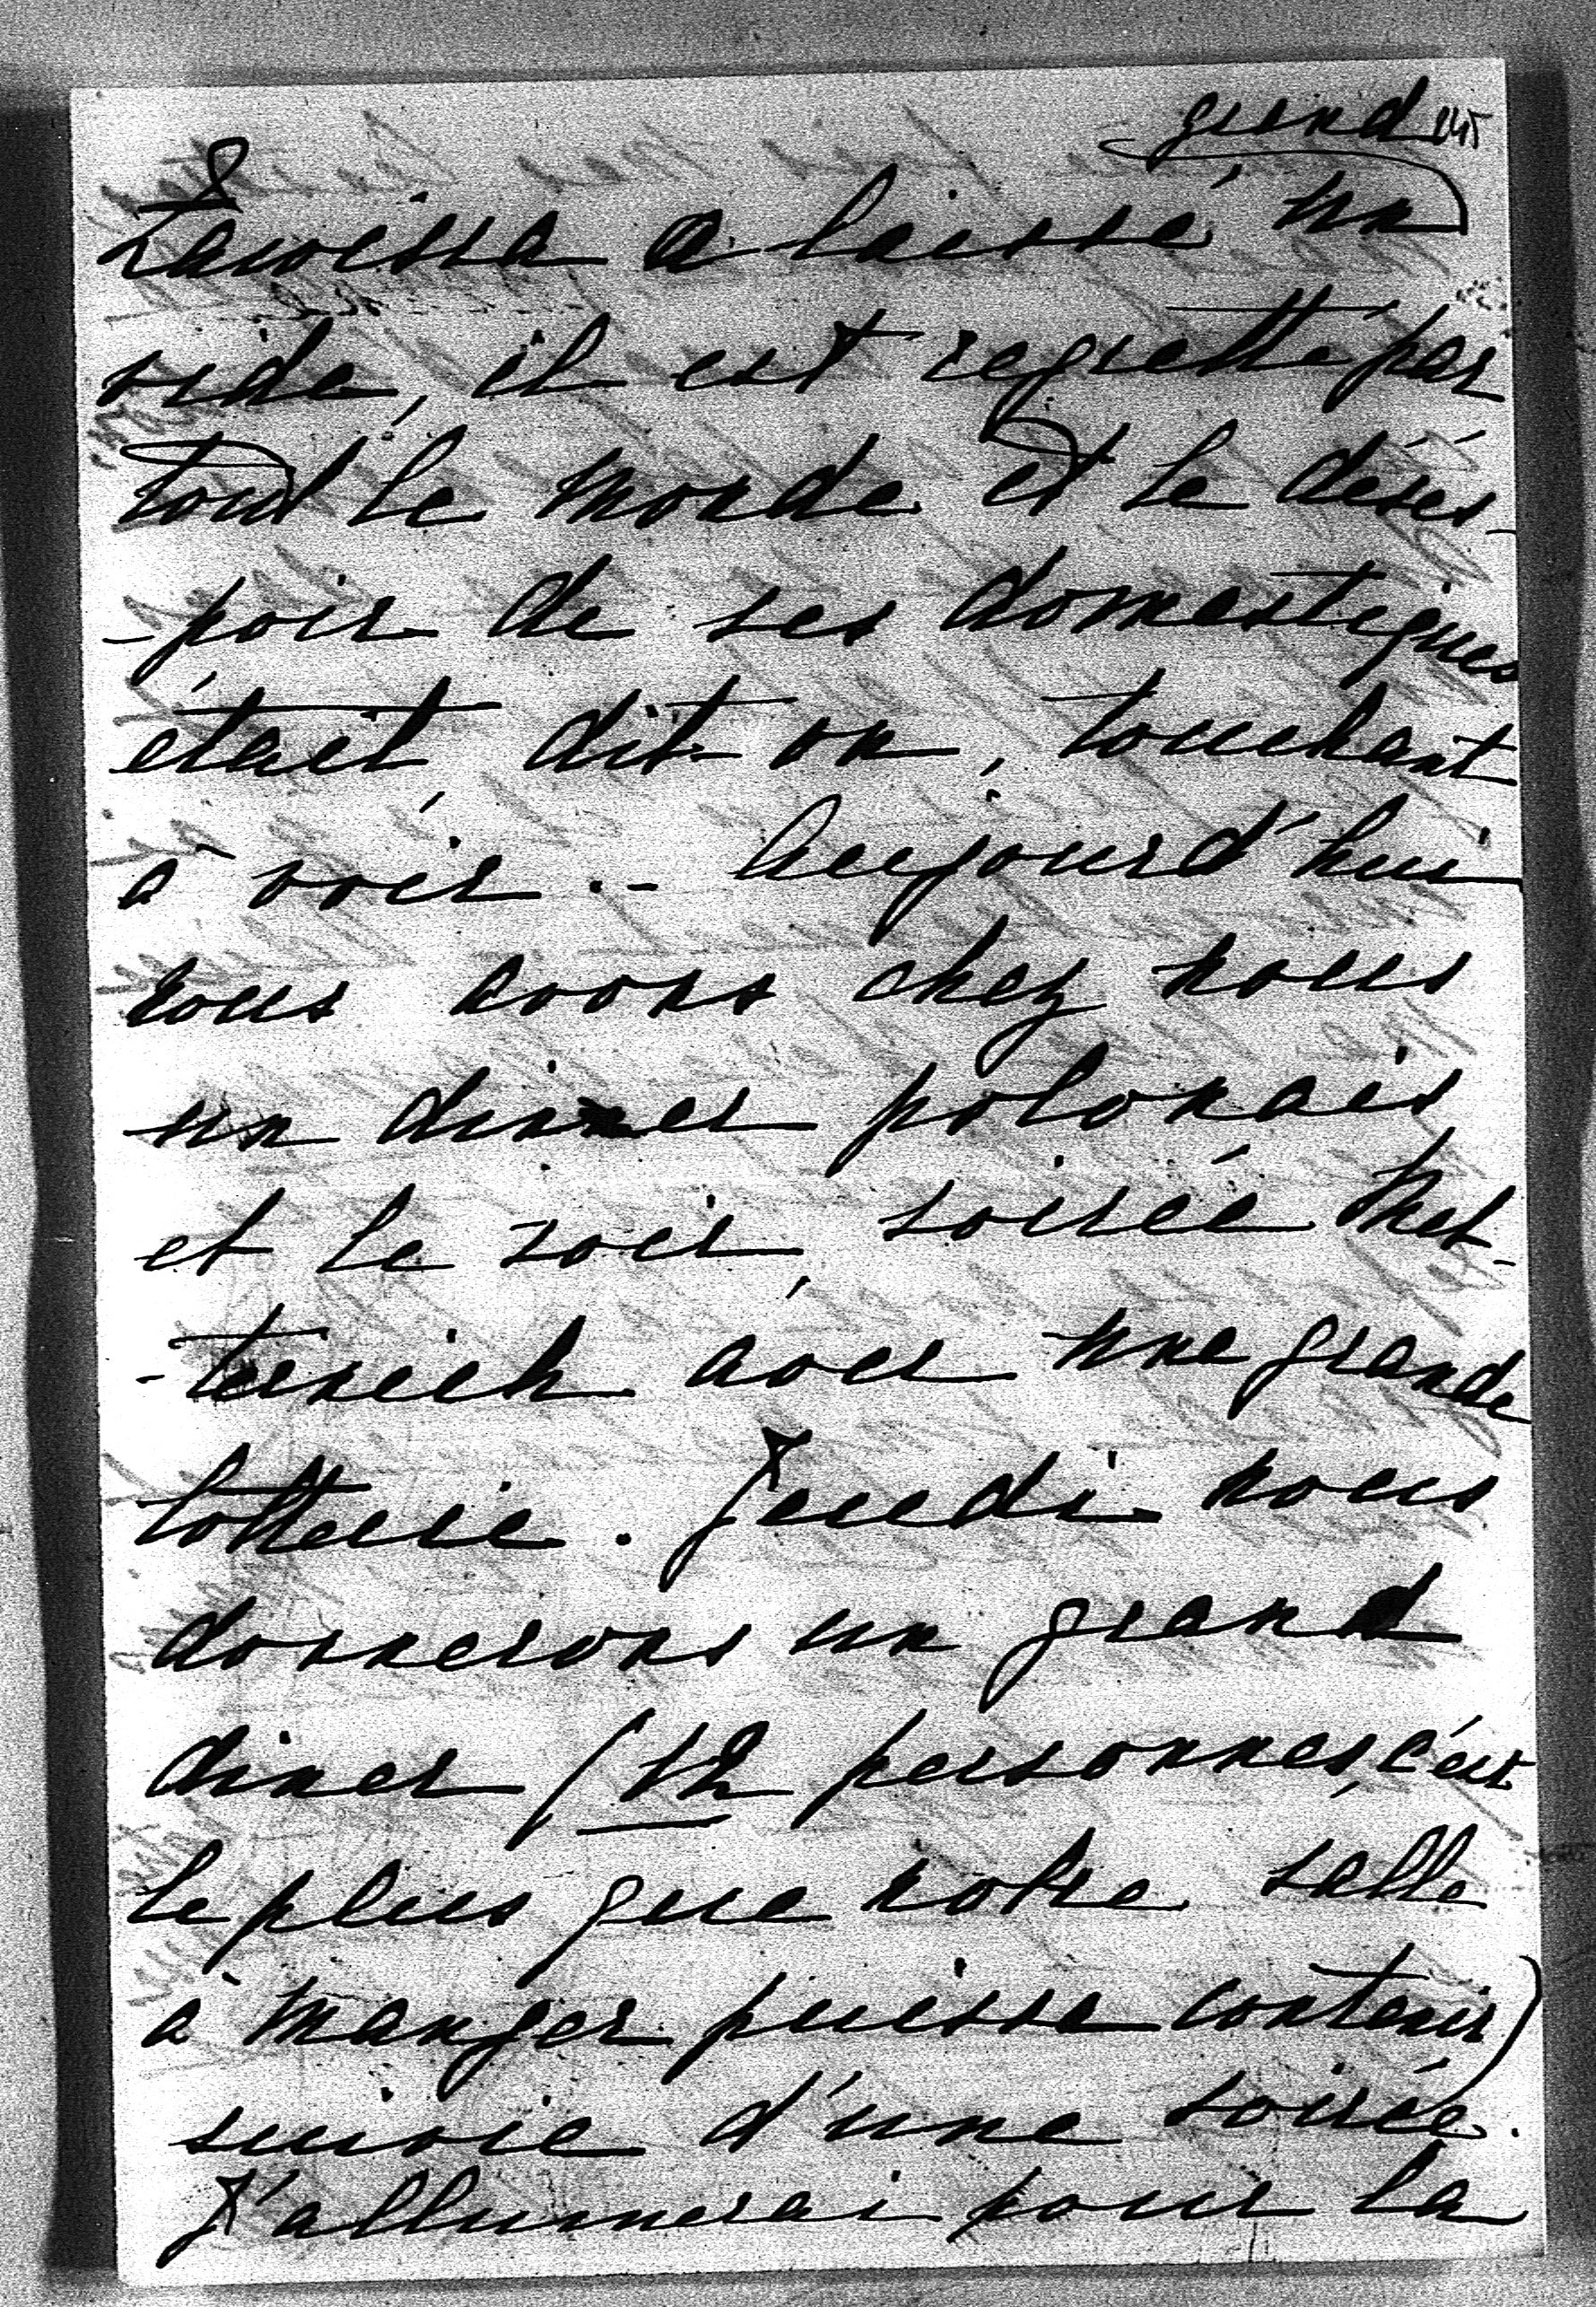 8
grand 245
Zawissa a laissé un
vide, il est regretté par
tout le monde et le déses-
-poir de ses domestiques
était dit-on, touchant
à voir.- Aujourd'hui
nous avons chez nous
un dinner polonais
et le soir, soirée Met-
-ternich avec une grande
lotterie. Jeudi nous
donnerons un grand
diner (12 personnes, c'est
le plus que notre salle
à manger puisse contenir)
suivie d'une soirée.
J'allumerai pour la